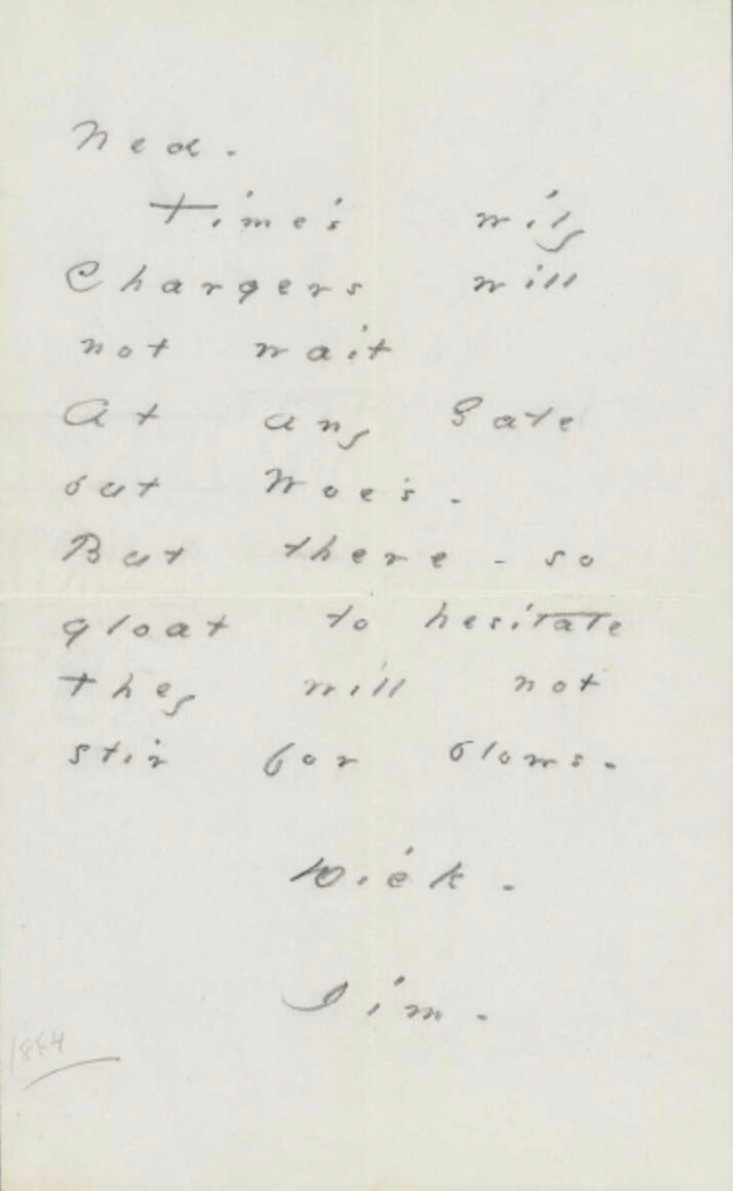 Ned.
Time's wily
Chargers will
not wait
At any Gate
but Woe's.
But there - so
gloat to hesitate
they will not
stir for blows.
Dick.
Jim.
1884